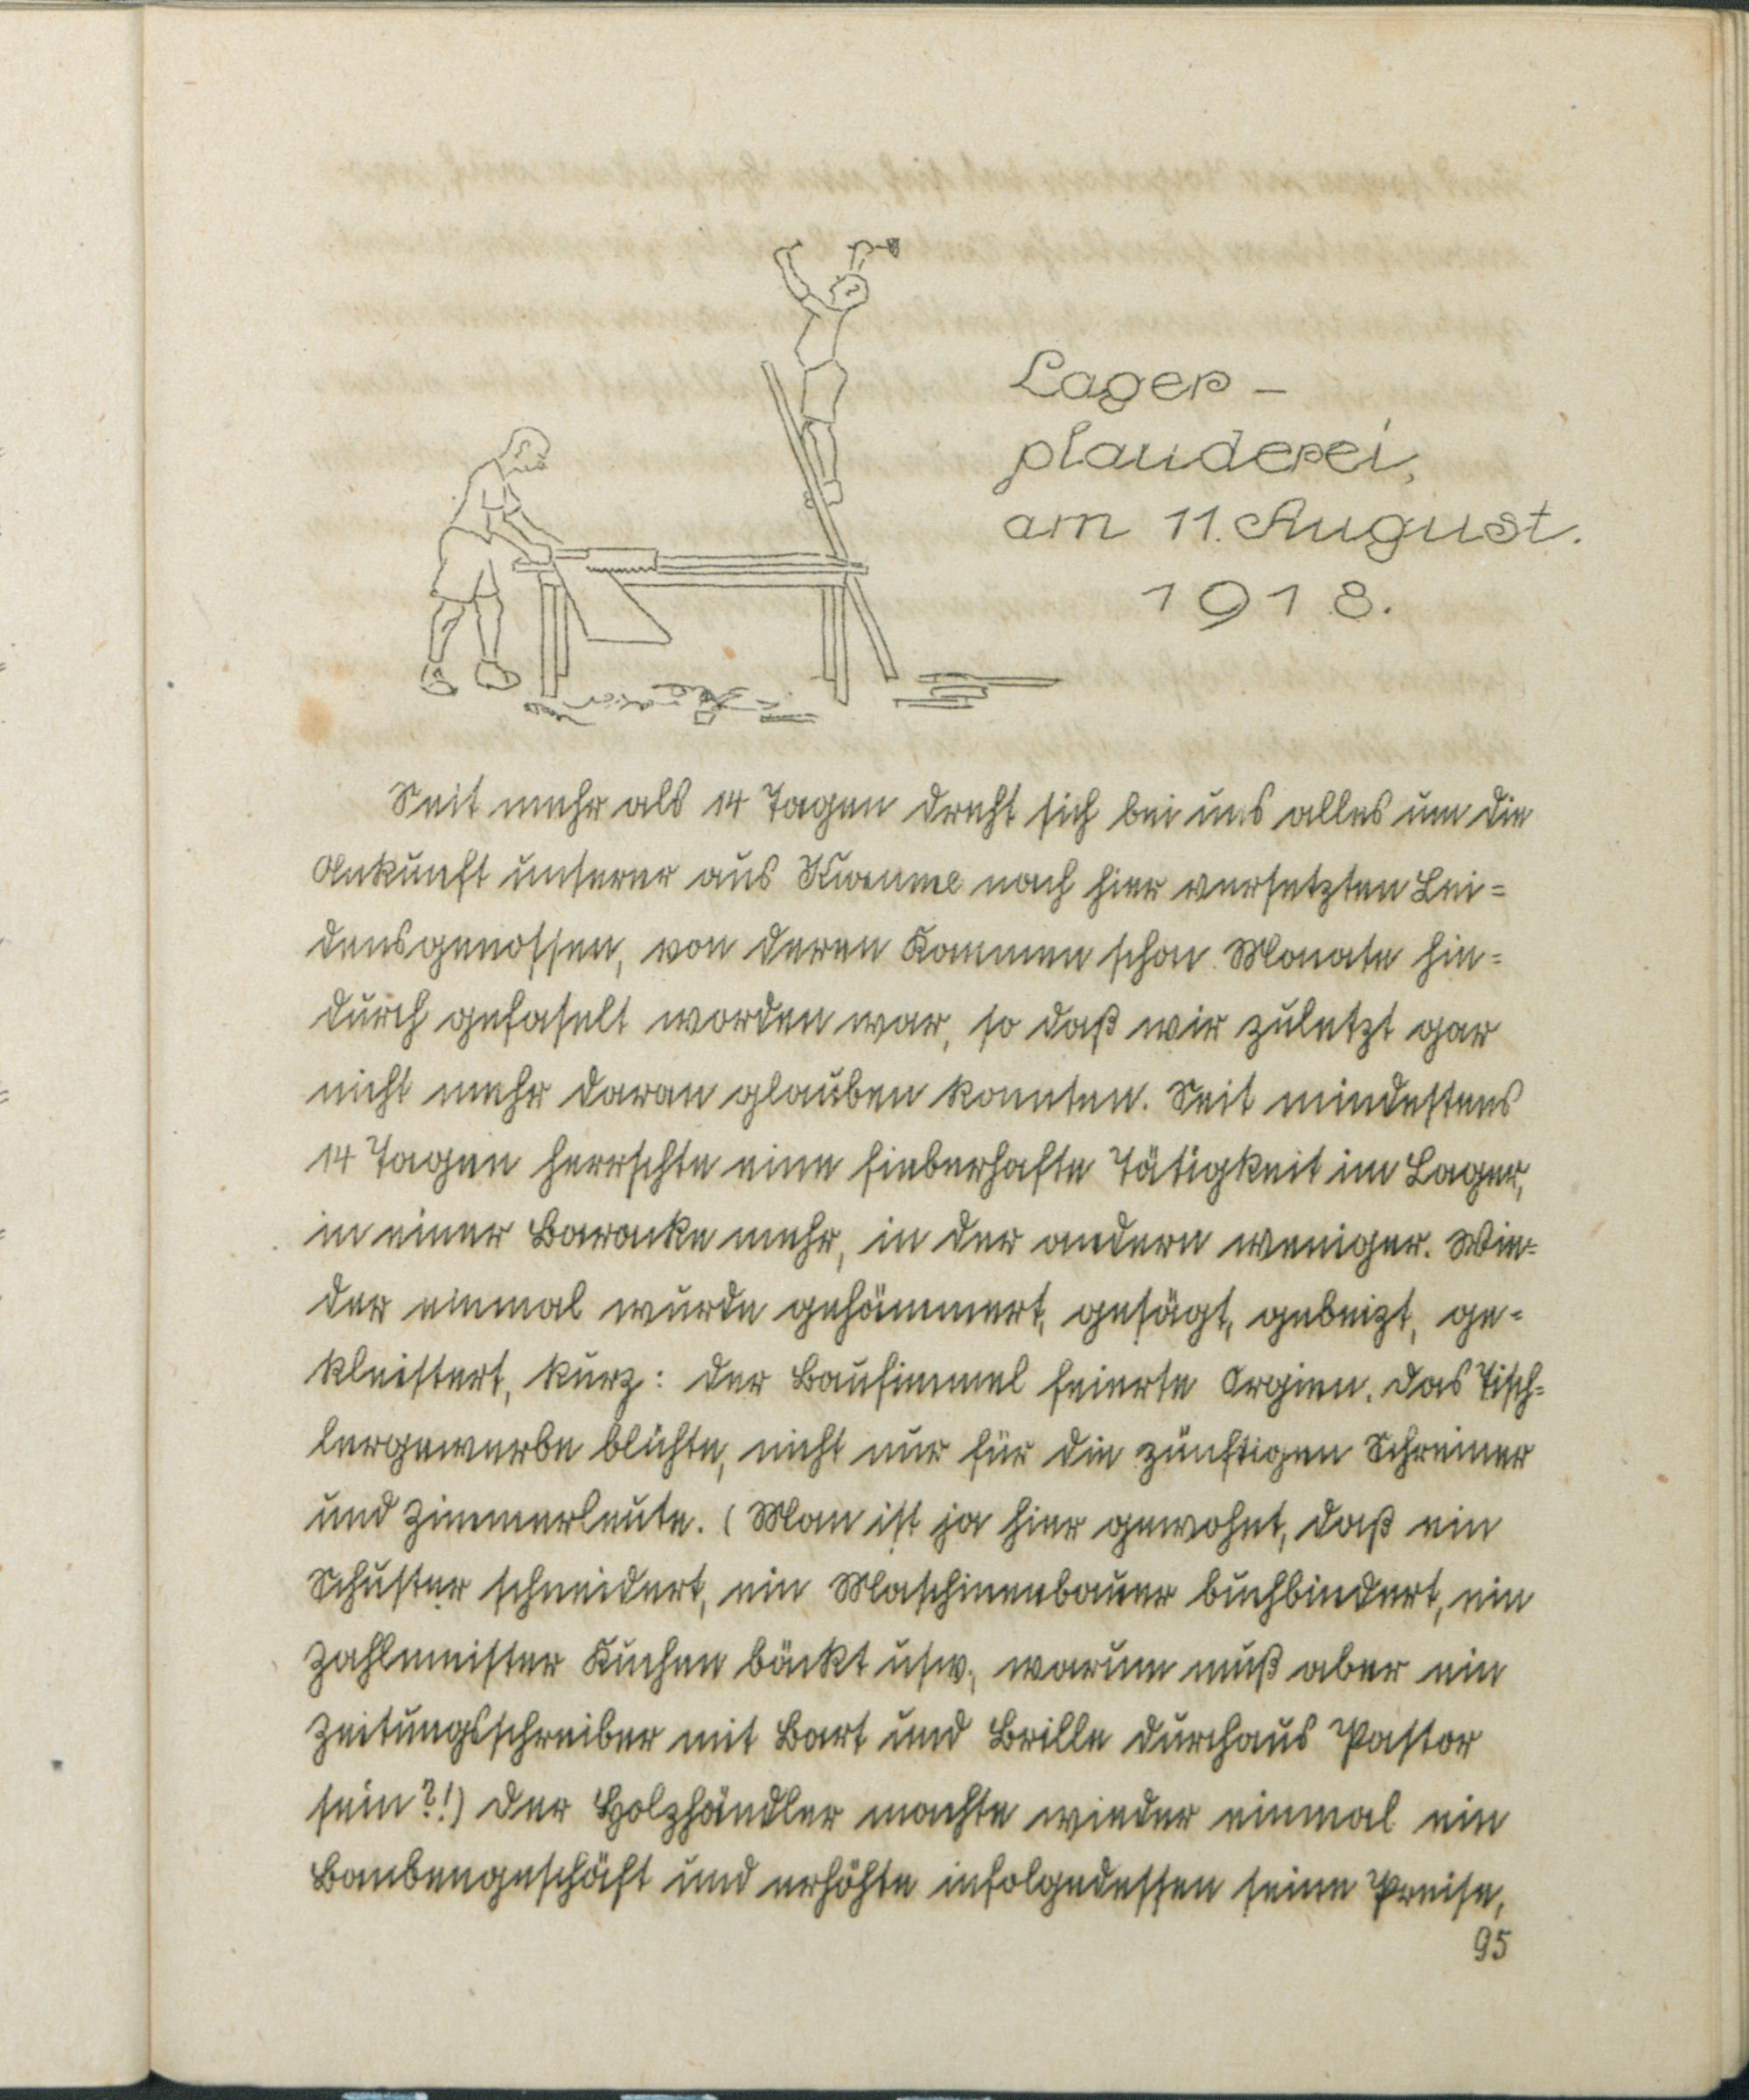 Lager-
plauderei,
am 11. August.
1918.
Seit mehr als 14 Tagen dreht sich bei uns alles um die
Ankunft unserer aus Kurume nach hier versetzten Lei=
densgenossen, von deren Kommen schon Monate hin=
durch gefaselt worden war, so daß wir zuletzt gar
nicht mehr daran glauben konnten. Seit mindestens
14 Tagen herrschte eine fieberhafte Tätigkeit im Lager,
in einer Baracke mehr, in der andern weniger. Wie=
der einmal wurde gehämmert, gesägt, gebeizt, ge=
kleistert, kurz: der Baufimmel feierte Orgien. Das Tisch=
lergewerbe blühte, nicht nur für die zünftigen Schreiner
und Zimmerleute. (Man ist ja hier gewohnt, daß ein
Schuster schneidert, ein Maschinenbauer buchbindert, ein
Zahlmeister Kuchen bäckt usw., warum muß aber ein
Zeitungsschreiber mit Bart und Brille durchaus Pastor
sein?!) Der Holzhändler machte wieder einmal ein
Bombengeschäft und erhöhte infolgedessen seine Preise,
95